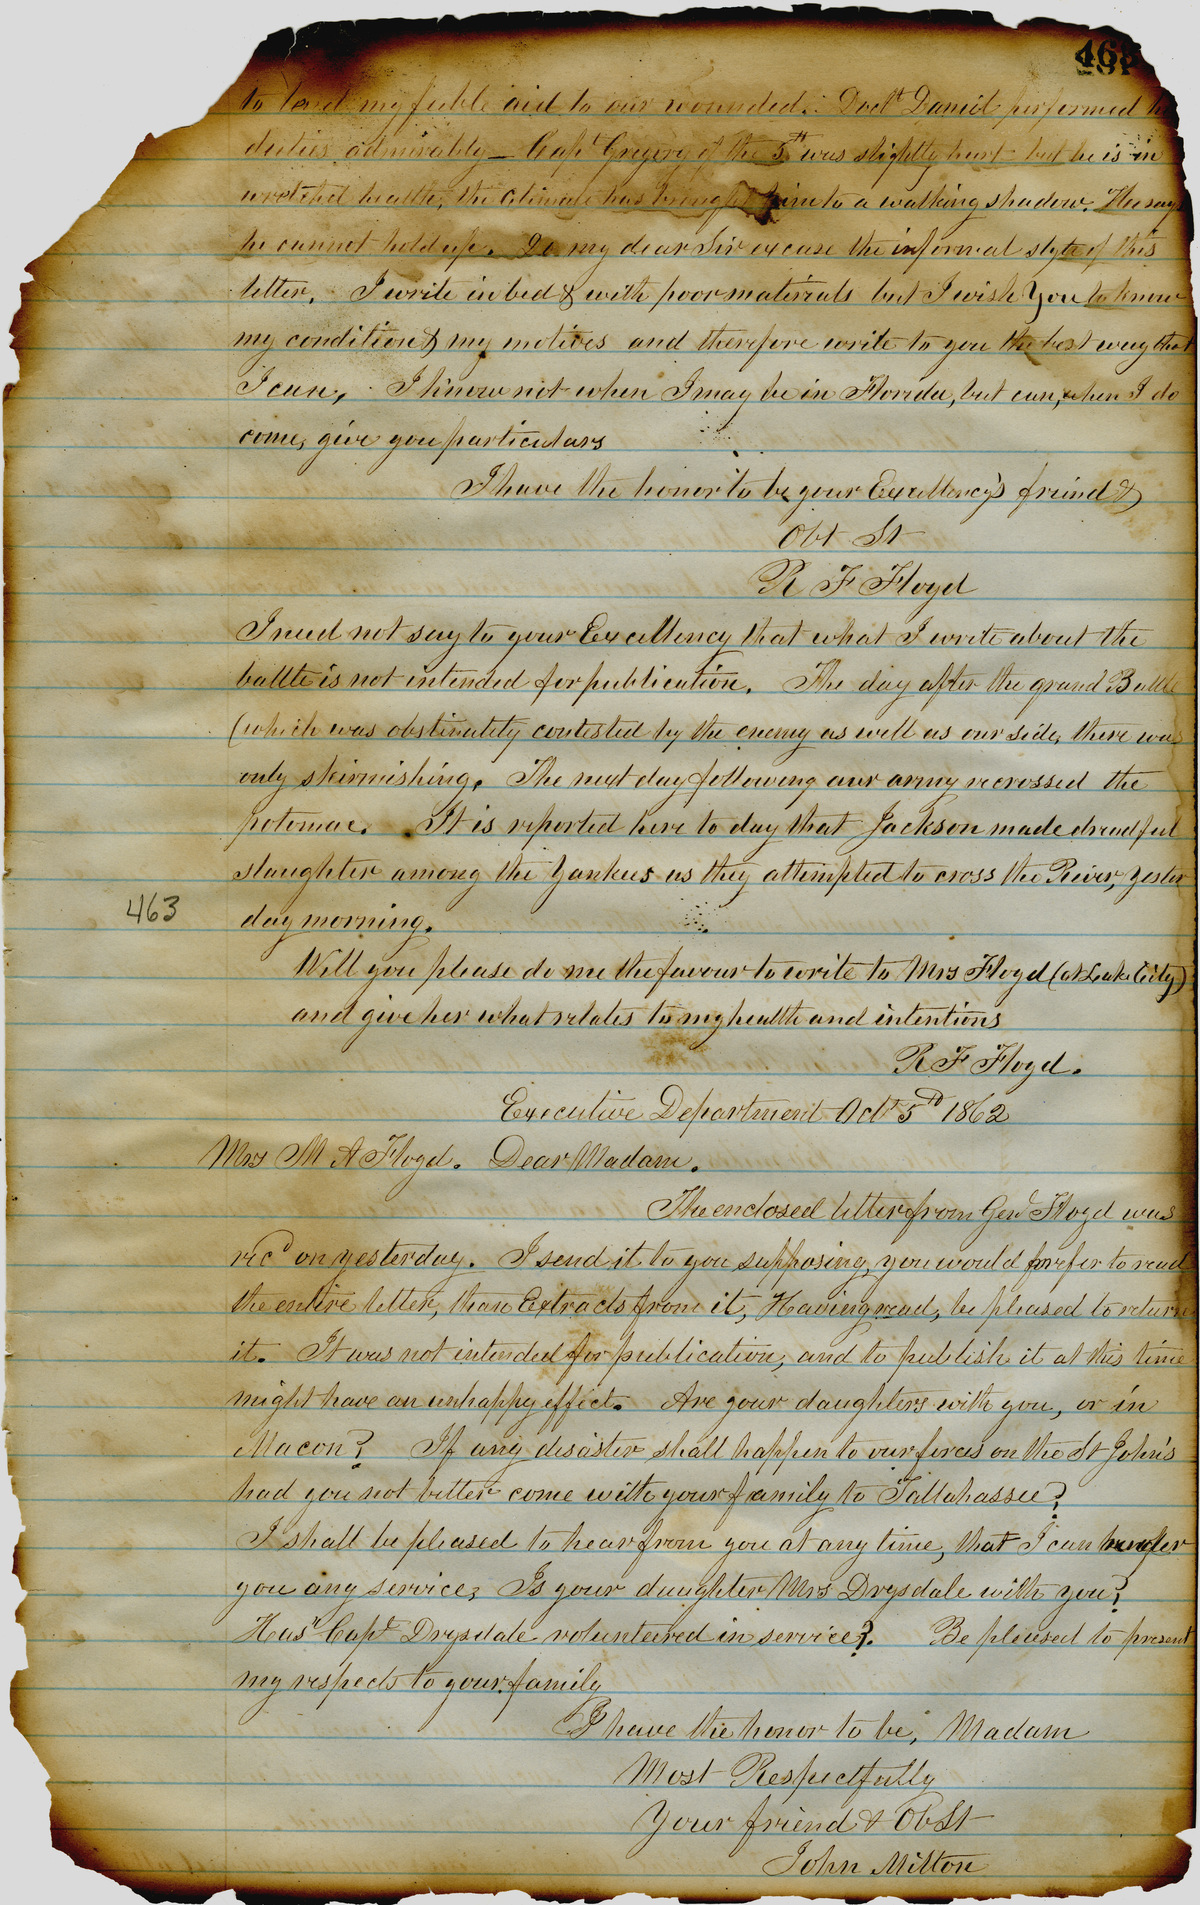 463
to lend my feeble aid to our wounded. Doct Daniel performed
duties admirably – Capt Gregory of the 5th was slightly hurt but he is in
wretched health, the climate has brought him to a walking shadow. He says
he cannot hold up. Do my dear Sir excuse the informal style of this
letter. I write in bed & with poor materials but I wish You to know
my condition & my motives and therefore write to you the best way that
I can. I know not when I may be in Florida, but can, when I do
come, give you particulars
I have the honor to be your Excellency's friend &
Obt St
R F Floyd
I need not say to your Excellency that what I write about the
battle is not intended for publication. The day after the grand Battle
(which was obstinately contested by the enemy as well as our side, there was
only skirmishing. The next day following our army recrossed the
potomac. It is reported here to day that Jackson made dreadful
slaughter among the Yankees as they attempted to cross the River, yester
463
day morning.
Will you please do me the favour to write to Mrs Floyd (at Lake City)
and give her what relates to my health and intentions
R F Floyd.
Executive Department Oct 5th 1862
Mrs M A Floyd. Dear Madam.
The enclosed letter from Genl Floyd was
recd on yesterday. I send it to you supposing, you would prefer to read
the entire letter, than Extracts from it, Having read, be pleased to return
it. It was not intended for publication, and to publish it at this time
might have an unhappy effect. Are your daughters with you, or in
Macon? If any disaster shall happen to our forces on the St John's
had you not better come with your family to Tallahassee?
I shall be pleased to hear from you at any time, that I can render
you any service; Is your daughter Mrs Drysdale with you?
Has Capt Drysdale volunteered in service?. Be pleased to present
my respects to your family
I have the honor to be, Madam
Most Respectfully
Your friend & Ob St
John Milton